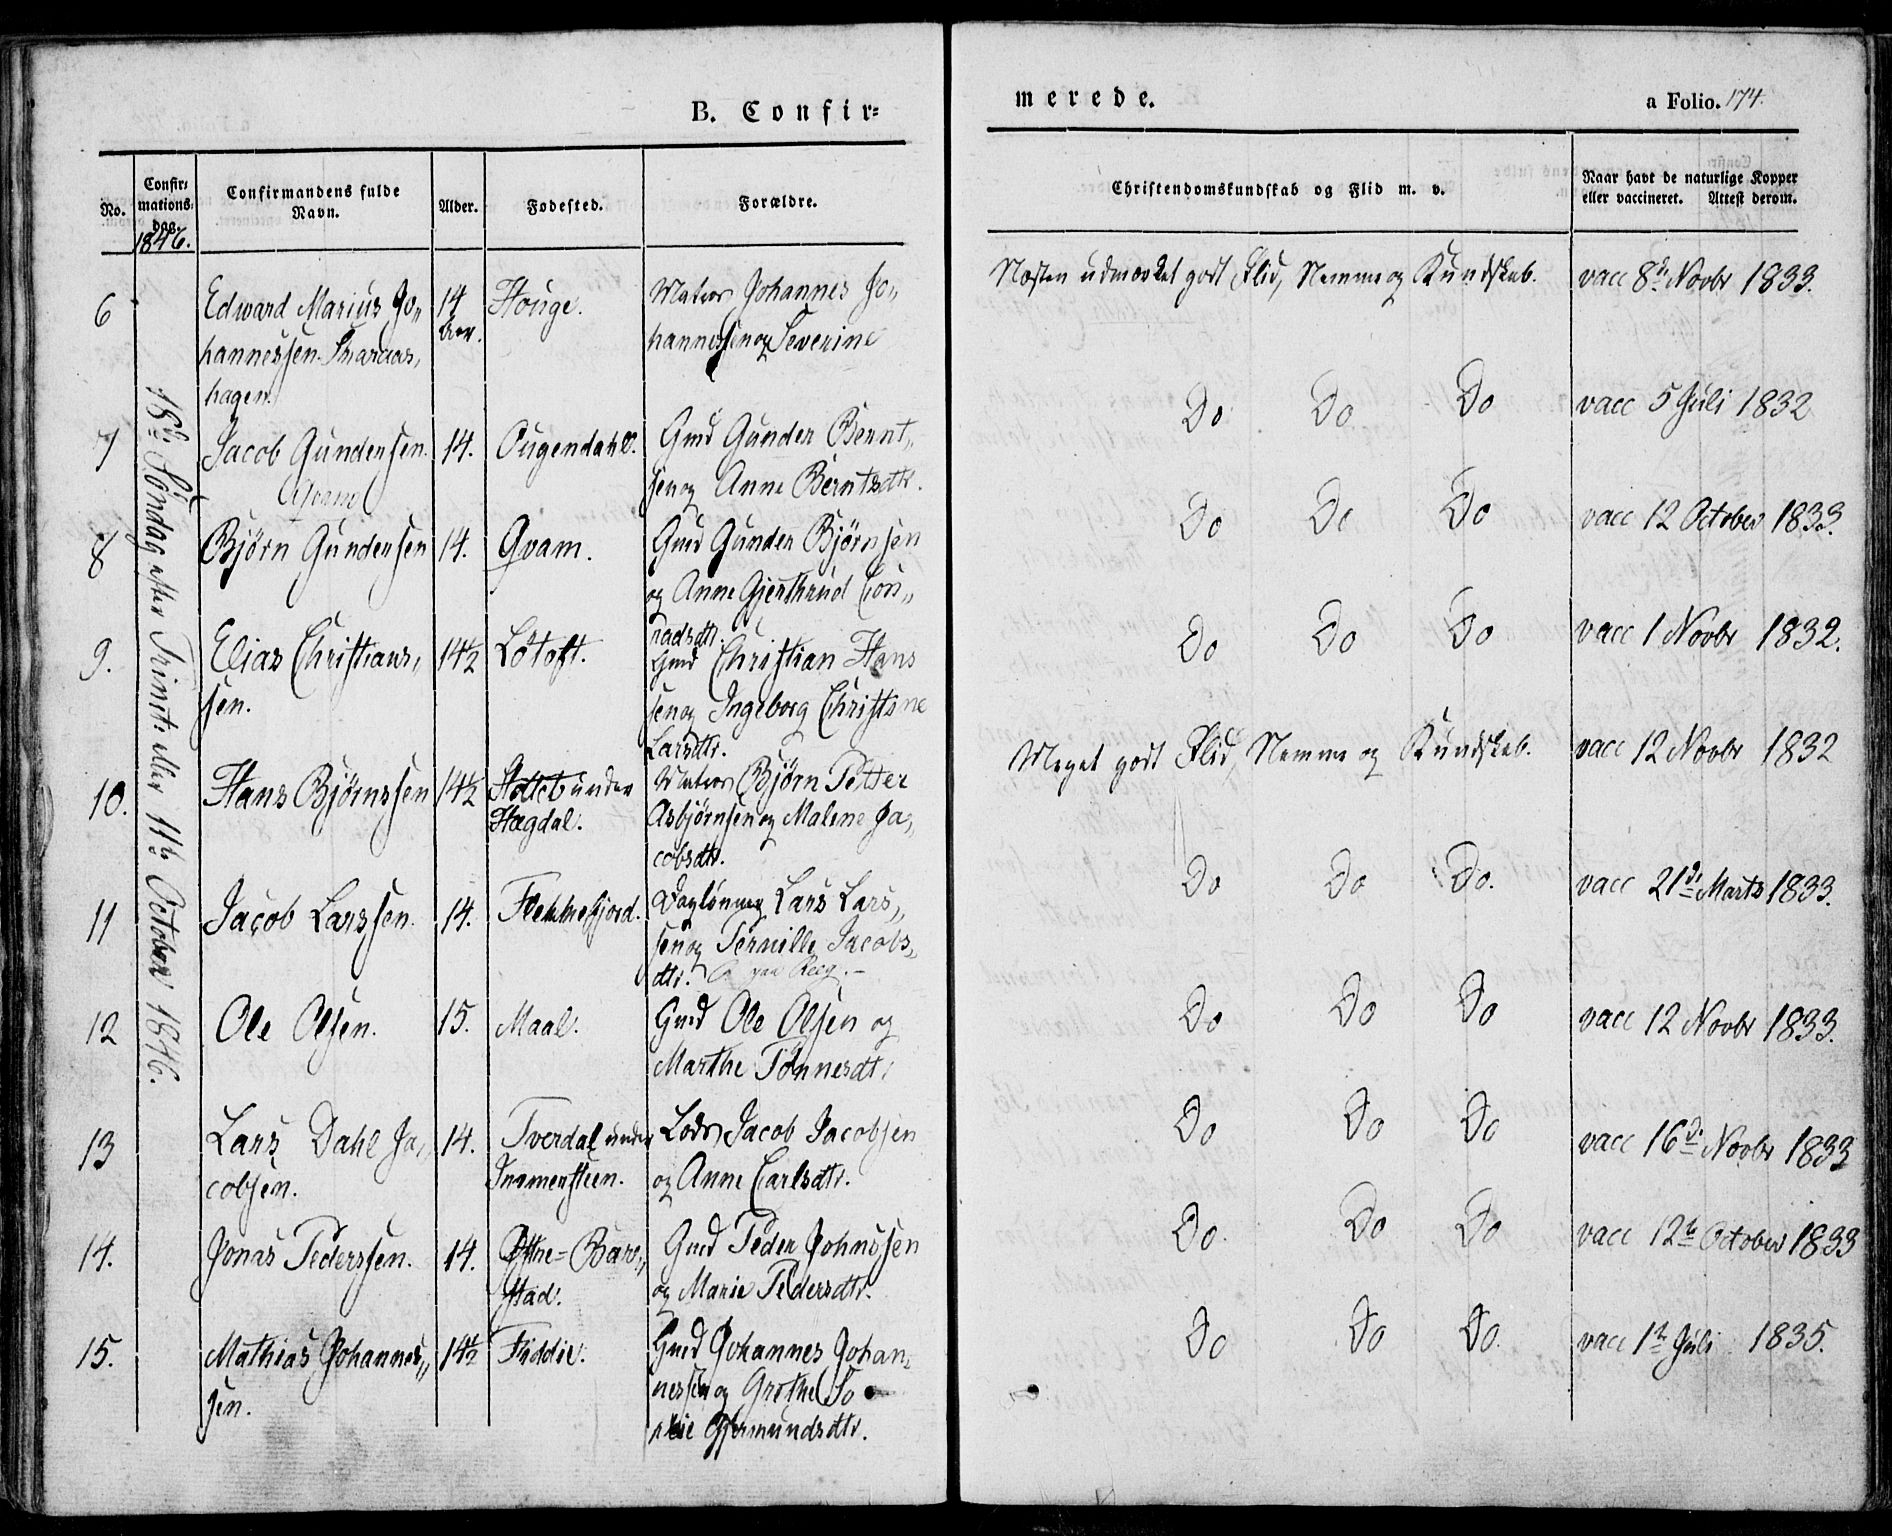 B. Confir=
merede.
a Folio. 174.
No.
Confir=
mations=
dag.
1846.
Confirmandens fulde
Navn.
Alder.
Fødested.
Forældre.
Christendomskundskab og Flid m. v.
Naar havt de naturlige Kopper
eller vaccineret. Attest derom.
18de Söndag efter Trinit: eller 11te October 1846.
6
Edward Marius Jo„
hannessen
hagen.
14
Aar.
Houge.
Matros Johannes Jo„
hannessen og Severine
Næsten udmærket godt Flid, Nemme og Kundskab.
vacc 8de Novbr 1833.
7
Jacob Gundersen.
14.
Ougendahl.
Gmd Gunder Bernt„
sen og Anne Berntsdtr.
Do Do Do
vacc 5 Juli 1832
8
Bjørn Gundersen
14.
Qvam.
Gmd Gunder Bjørnsen
og Anne Gjerthrud Con„
radsdtr.
Do Do Do
vacc 12 October 1833.
9.
Elias Christians„
sen.
14½
Lötoft.
Gmd Christian Hans
sen og Ingeborg Christine
Larsdtr.
Do Do Do
vacc 1 Novbr 1832.
10.
Hans Bjørnssen
14½
under
Hægdal.
Matros Bjørn Petter
Asbjørnsen og Malene Ja„
cobsdtr.
Meget godt Flid, Nemme og Kundskab.
vacc 12 Novbr 1832
11
Jacob Larssen.
14.
Flekkefjord.
Lars Lars„
sen og Pernille Jacobs„
dtr.
Do Do Do.
vacc 21de Marts 1833.
12
Ole Olsen.
15.
Maal.
Gmd Ole Olsen og
Marthe Tönnesdtr
Do Do Do
vacc 12 Novbr 1833.
13
Lars Dahl Ja„
cobsen.
14.
Tverdal under
Lods Jacob Jacobsen
og Anne Carlsdtr.
Do Do Do
vacc 16de Novbr 1833
14.
Jonas Pederssen.
14.
stad.
Gmd Peder Johnssen
og Marie Pedersdtr.
Do Do Do
vacc 12te October 1833
15.
Mathias Johannes„
sen.
14½
Fiddie.
Gmd Johannes Johan„
nessen og Grethe So
phie Gjermundsdtr.
Do Do Do.
vacc 1te Juli 1835.